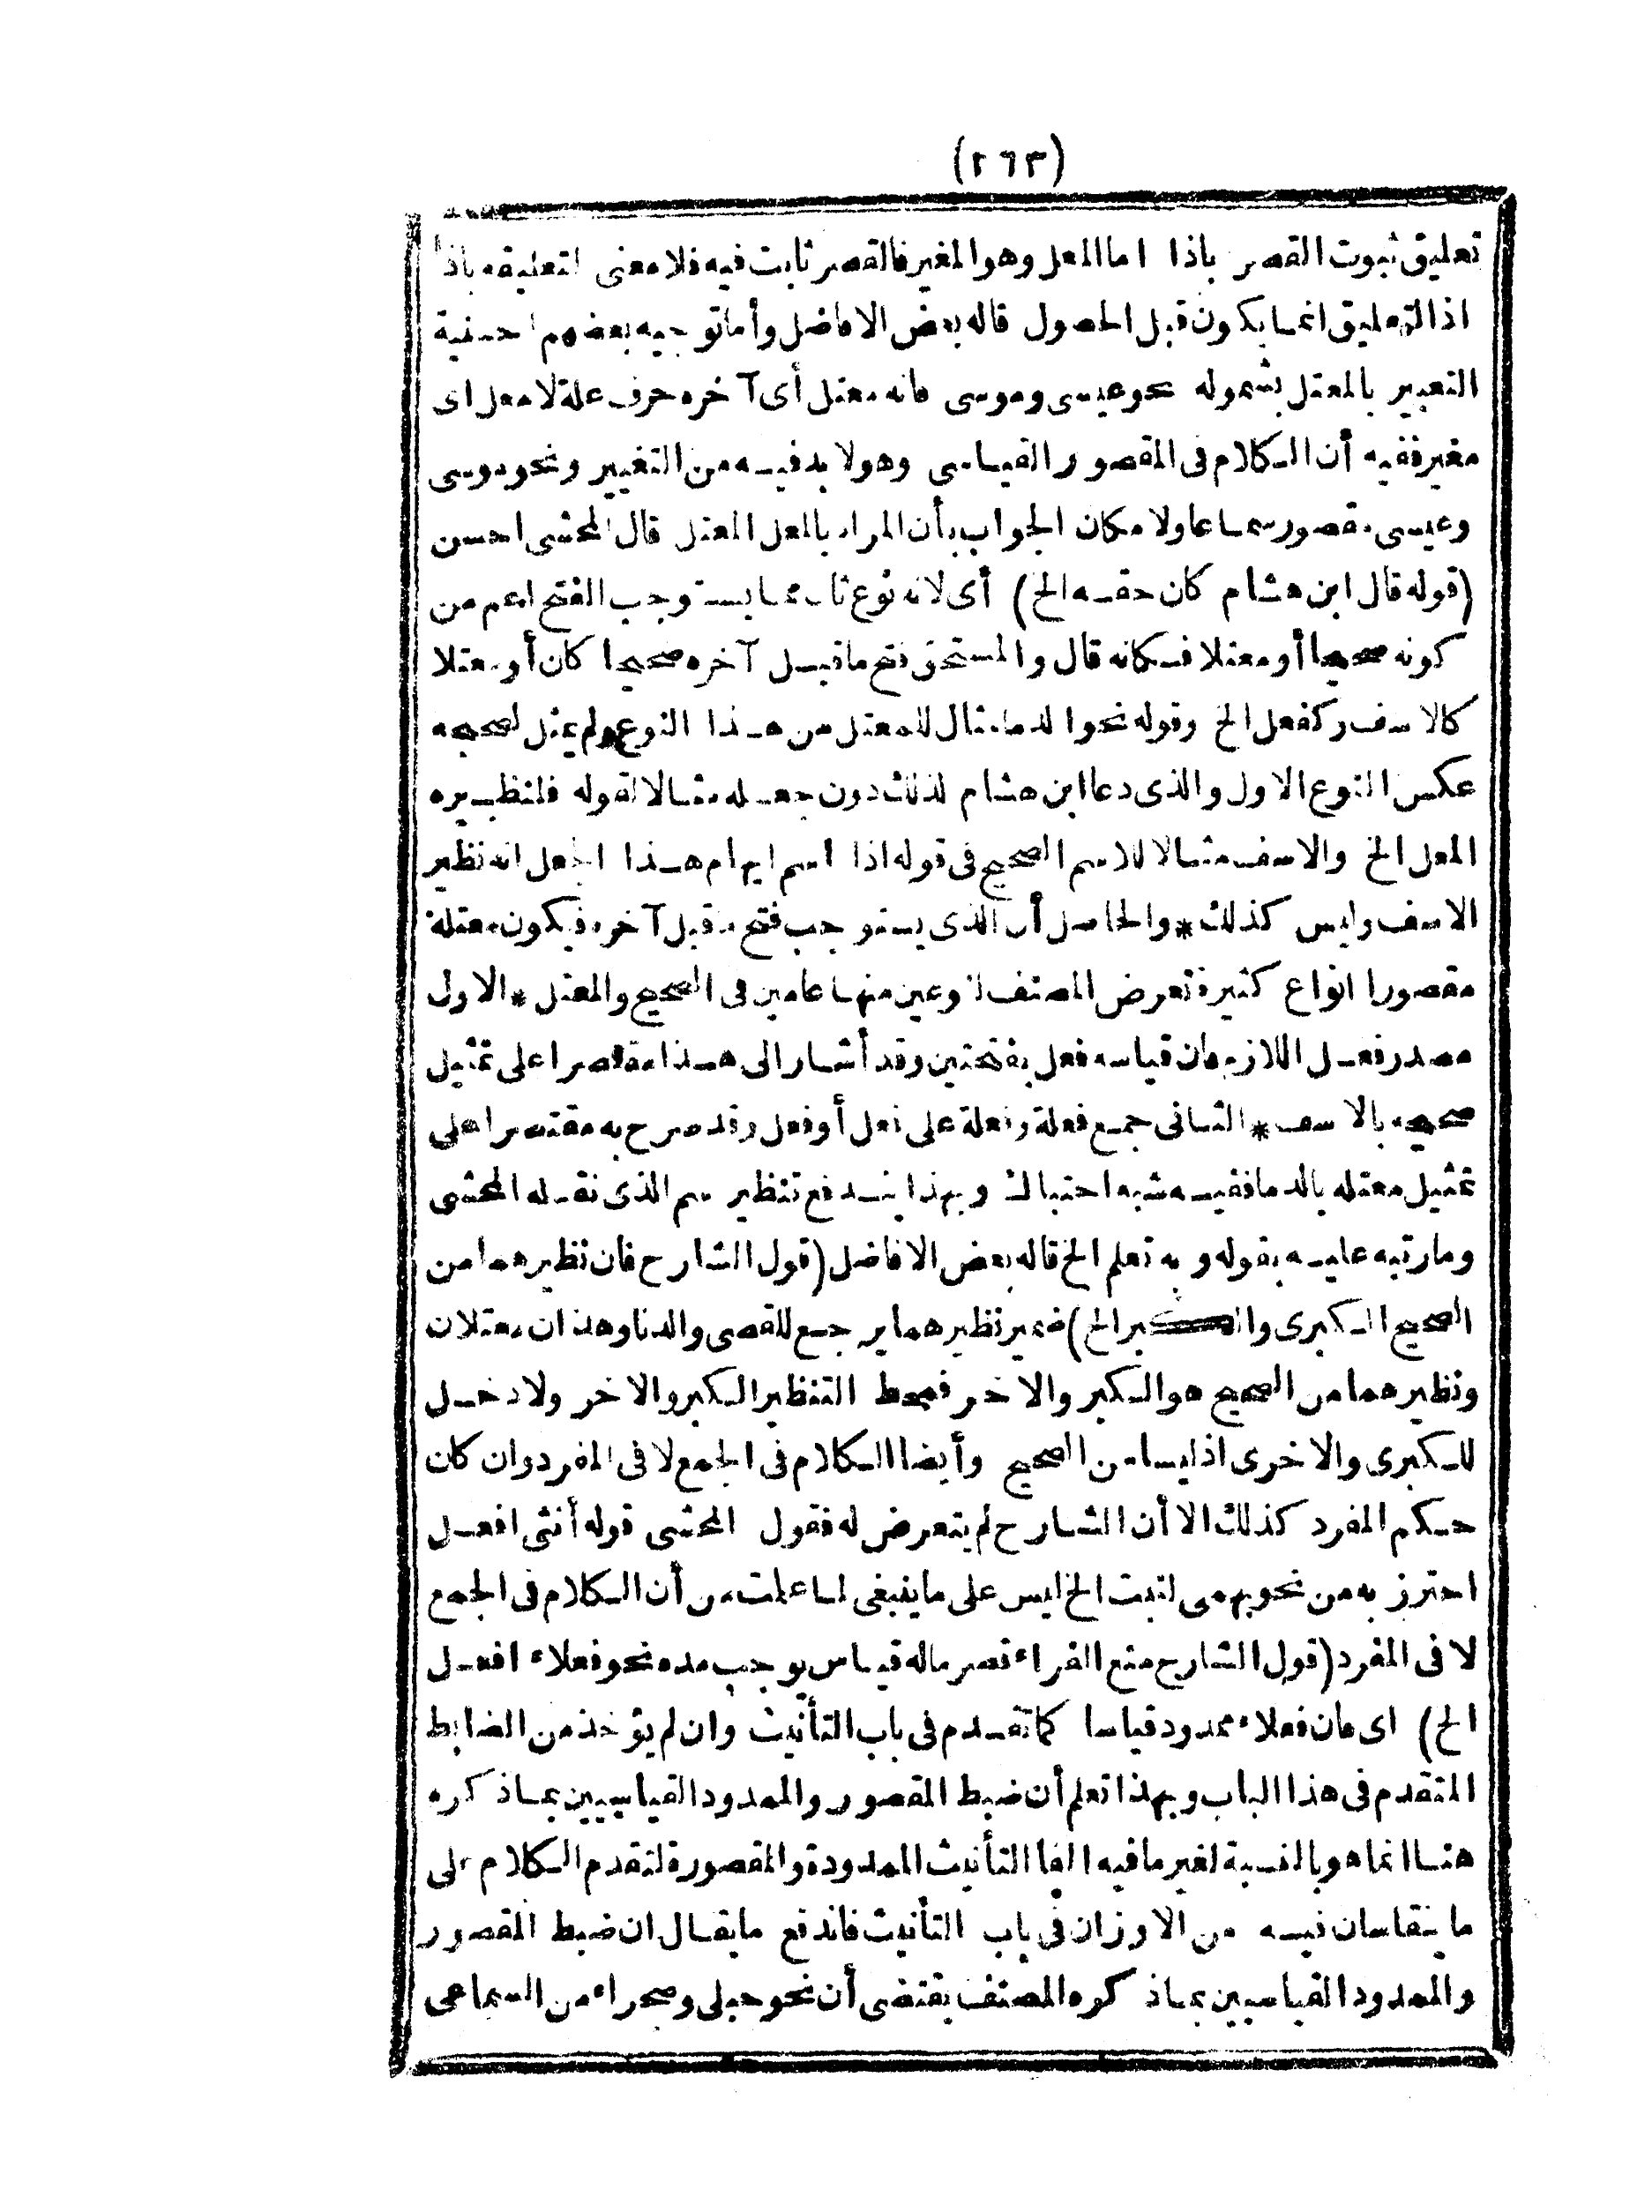 (٢٦٣)
تعليق ثبوت القصر باذا اما المعل وهو المغير فالقصر ثابت فيه فلا معنى لتعليقه باذا
اذ التعليق انما يكون قبل الحصول قاله بعض الافاضل وأما توجيه بعضهم احسنية
التعبير بالمعتل بشموله نحو عيسى وموسى فانه معتل أى آخره حرف علة لا معل اى
مغير ففيه أن الكلام فى المقصور القياسى وهو لا بد فيه من التغيير ونحو موسى
وعيسى مقصور سماعا ولا مكان الجواب بأن المراد بالمعل المعتل قال المحشى احسن
(قوله قال ابن هشام كان حقه الخ) أى لانه نوع ثان مما يستوجب الفتح اعم من
كونه صحيحا أو معتلا فكانه قال والمستحق فتح ما قبل آخره صحيحا كان أو معتلا
كالاسف وكفعل الخ وقوله نحو الدما مثال للمعتل من هذا النوع ولم يمثل لصحيحه
عكس النوع الاول والذى دعا ابن هشام لذلك دون جعله مثالا لقوله فلنظيره
المعل الخ والاسف مثالا للاسم الصحيح فى قوله اذا اسم ايهام هذا الجعل انه نظير
الاسف وليس كذلك * والحاصل أن الذى يستوجب فتح ما قبل آخره فيكون معتله
مقصورا انواع كثيرة تعرض المصنف لنوعين منها عامين فى الصحيح والمعتل * الاول
مصدر فعل اللازم فان قياسه فعل بفتحتين وقد أشار الى هذا مقتصرا على تمثيل
صحيحه بالاسف * الثانى جمع فعلة وفعلة على فعل أو فعل وقد صرح به مقتصرا على
تمثيل معتله بالدما ففيه شبه احتباك وبهذا يندفع تنظير سم الذى نقله المحشى
وما رتبه عليه بقوله وبه تعلم الخ قاله بعض الافاضل (قول الشارح فان نظيرهما من
الصحيح الكبرى والكبر الخ) ضمير نظيرهما يرجع للقصى والدنا وهذان معتلان
ونظيرهما من الصحيح هو الكبر والاخر فمحط التنظير الكبر والاخر ولا دخل
للكبرى والاخرى اذ ليسا من الصحيح وأيضا الكلام فى الجمع لا فى المفرد وان كان
حكم المفرد كذلك الا أن الشارح لم يتعرض له فقول المحشى قوله أنثى افعل
احترز به من نحو بهمى لنبت الخ ليس على ما ينبغى لما علمت من أن الكلام فى الجمع
لا فى المفرد (قول الشارح منع الفراء قصر ماله قياس يوجب مده نحو فعلاء افعل
الخ) اى فان فعلاء ممدود قياسا كما تقدم فى باب التأنيث وان لم يؤخذ من الضابط
المتقدم فى هذا الباب وبهذا تعلم أن ضبط المقصور والممدود القياسيين بما ذكره
هنا انما هو بالنسبة لغير ما فيه الفا التأنيث الممدودة والمقصورة لتقدم الكلام على
ما ينقاسان فيه من الاوزان فى باب التأنيث فاندفع ما يقال ان ضبط المقصور
والممدود القياسيين بما ذكره المصنف يقتضى أن نحو حبلى وصحراء من السماعى